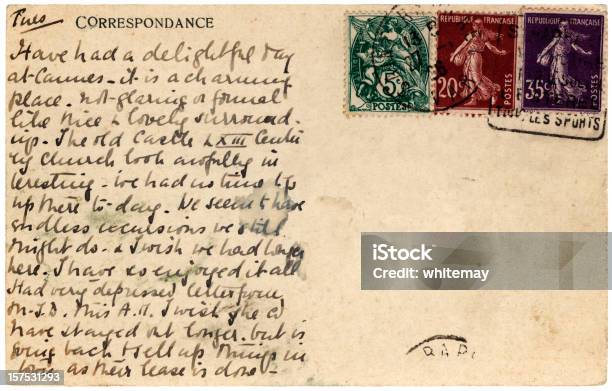 Tues
CORRESPONDANCE
Have had a delightful day
at Cannes - it is a charming
place. not glaring or formal
like Nice & lovely surround-
ings. The old Castle & XIII Centu
ry Church look awfully in
teresting - we had no time to go
up there to-day. We seem to have
endless excursions we still
might do - & I wish we had longer
here. I have so enjoyed it all
Had very depressed letter from
this A.M. I wish she cd
have stayed out longer. but is
going back to sell up things in
as their lease is done -
RÉPUBLIQUE FRANÇAISE
RÉPUBLIQUE FRANÇAISE
5c
POSTES
20c
POSTES
35c
POSTES
LES SPORTS
PARI
iStock
Credit: whitemay
157531293